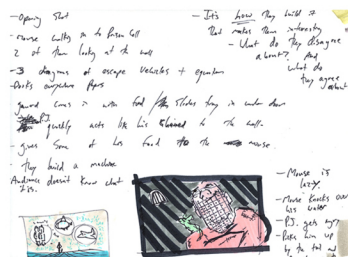 - Opening Shot
- mouse walks in to Prison Cell
2 of them looking at the wall
- 3 diagrams of escape vehicles + equations
- Books everywhere Papers
guard comes in with food / slides tray in under door
P.J. quickly acts like his chained to the wall.
- gives some of his food to the mouse.
- they build a machine
Audience doesn't know what
it is.
- It's how they build it
that makes them interesting
- What do they disagree
about? And
what do
they agree
about
- Mouse is
lazy.
- Mouse knocks over
his water
- P.J. gets angry
- Picks him up
by the tail and